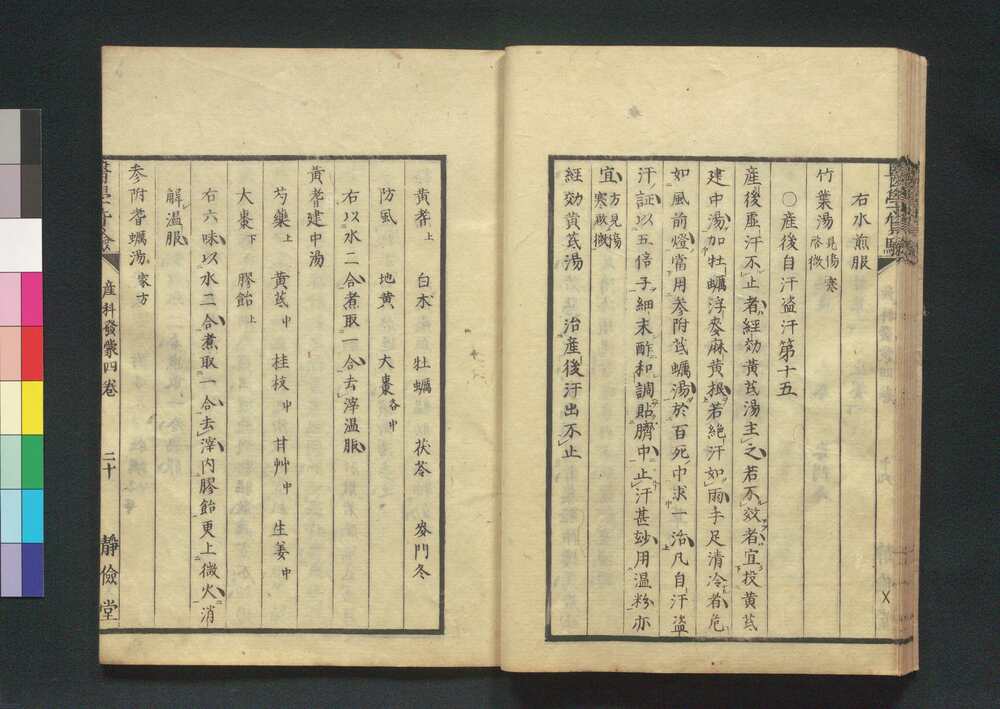 右水煎服
竹葉湯 見傷寒啓微
〇産後自汗盗汗第十五
産後虚汗不止者經効黄芪湯主之若不效者宜投黄芪
建中湯加牡蠣浮麥麻黄根若絶汗如雨手足清冷者危
如風前燈當用参附芪蠣湯於百死中求一治凡自汗盗
汗証以五倍子細末酢和調貼臍中止汗甚玅用温粉亦
宜 方見傷寒啓微
經効黄芪湯 治産後汗出不止
黄耆上 白朮 牡蠣 茯苓 麥門冬
防風 地黄 大棗各中
右以水二合煮取一合去滓温服
黄耆建中湯
芍藥上 黄芪中 桂枝中 甘艸中 生姜中
大棗下 膠飴上
右六味以水二合煮取一合去滓内膠飴更上微火消
解温服
参附耆蠣湯 家方
産科發蒙四卷 二十 靜儉堂